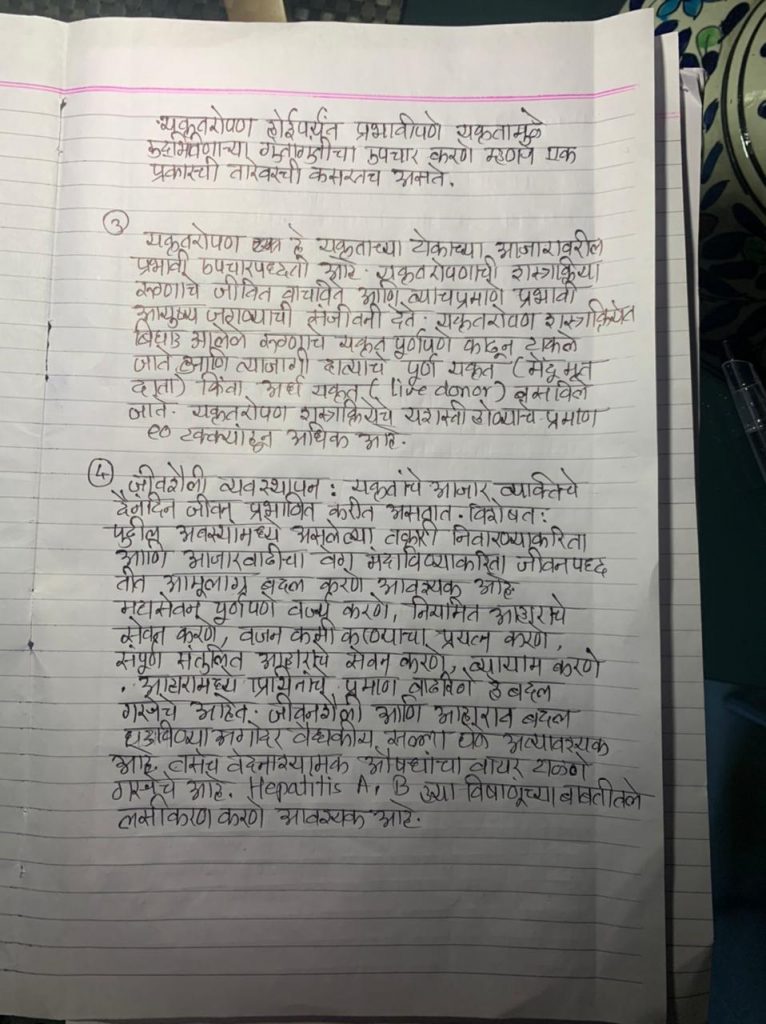 यकृतरोपण होईपर्यंत प्रभावीपणे यकृतामुळे
गुंतागुंतीचा उपचार करणे म्हणजे एक
प्रकारची तारेवरची कसरतच असते.
③ यकृतरोपण हे यकृताच्या टोकाच्या आजारावरील
प्रभावी उपचारपध्दती आहे. यकृतरोपणाची शस्त्रक्रिया
रुग्णाचे जीवित वाचविते आणि त्याचप्रमाणे प्रभावी
आयुष्य जगण्याची संजीवनी देते. यकृतरोपण शस्त्रक्रियेत
बिघाड आलेले रुग्णाचे यकृत पूर्णपणे काढून टाकले
जाते आणि त्याजागी दात्याचे पूर्ण यकृत (मेंदू मृत
दाता) किंवा अर्ध यकृत (live donor) बसविले
जाते. यकृतरोपण शस्त्रक्रियेचे यशस्वी होण्याचे प्रमाण
९० टक्क्यांहून अधिक आहे.
④ जीवशैली व्यवस्थापन : यकृतांचे आजार व्यक्तिचे
दैनंदिन जीवन प्रभावित करीत असतात. विशेषतः
पुढील अवस्थामध्ये असलेल्या तक्रारी निवारण्याकरिता
आणि आजारवाढीचा वेग मंदाविण्याकरिता जीवनपध्द
तीत आमूलाग्र बदल करणे आवश्यक आहे.
मद्यसेवन पूर्णपणे वर्ज्य करणे, नियमित आहाराचे
सेवन करणे, वजन कमी करण्याचा प्रयत्न करणे,
संपूर्ण संतुलित आहाराचे सेवन करणे, व्यायाम करणे
. आहारामध्ये प्रथिनांचे प्रमाण वाढविणे हे बदल
गरजेचे आहेत. जीवनशैली आणि आहारात बदल
घडविण्या अगोदर वैद्यकीय सल्ला घेणे अत्यावश्यक
आहे. तसेच वेदनाश्यामक औषधांचा वापर टाळणे
गरजेचे आहे. Hepatitis A, B ह्या विषाणूंच्या बाबतीतले
लसीकरण करणे आवश्यक आहे.